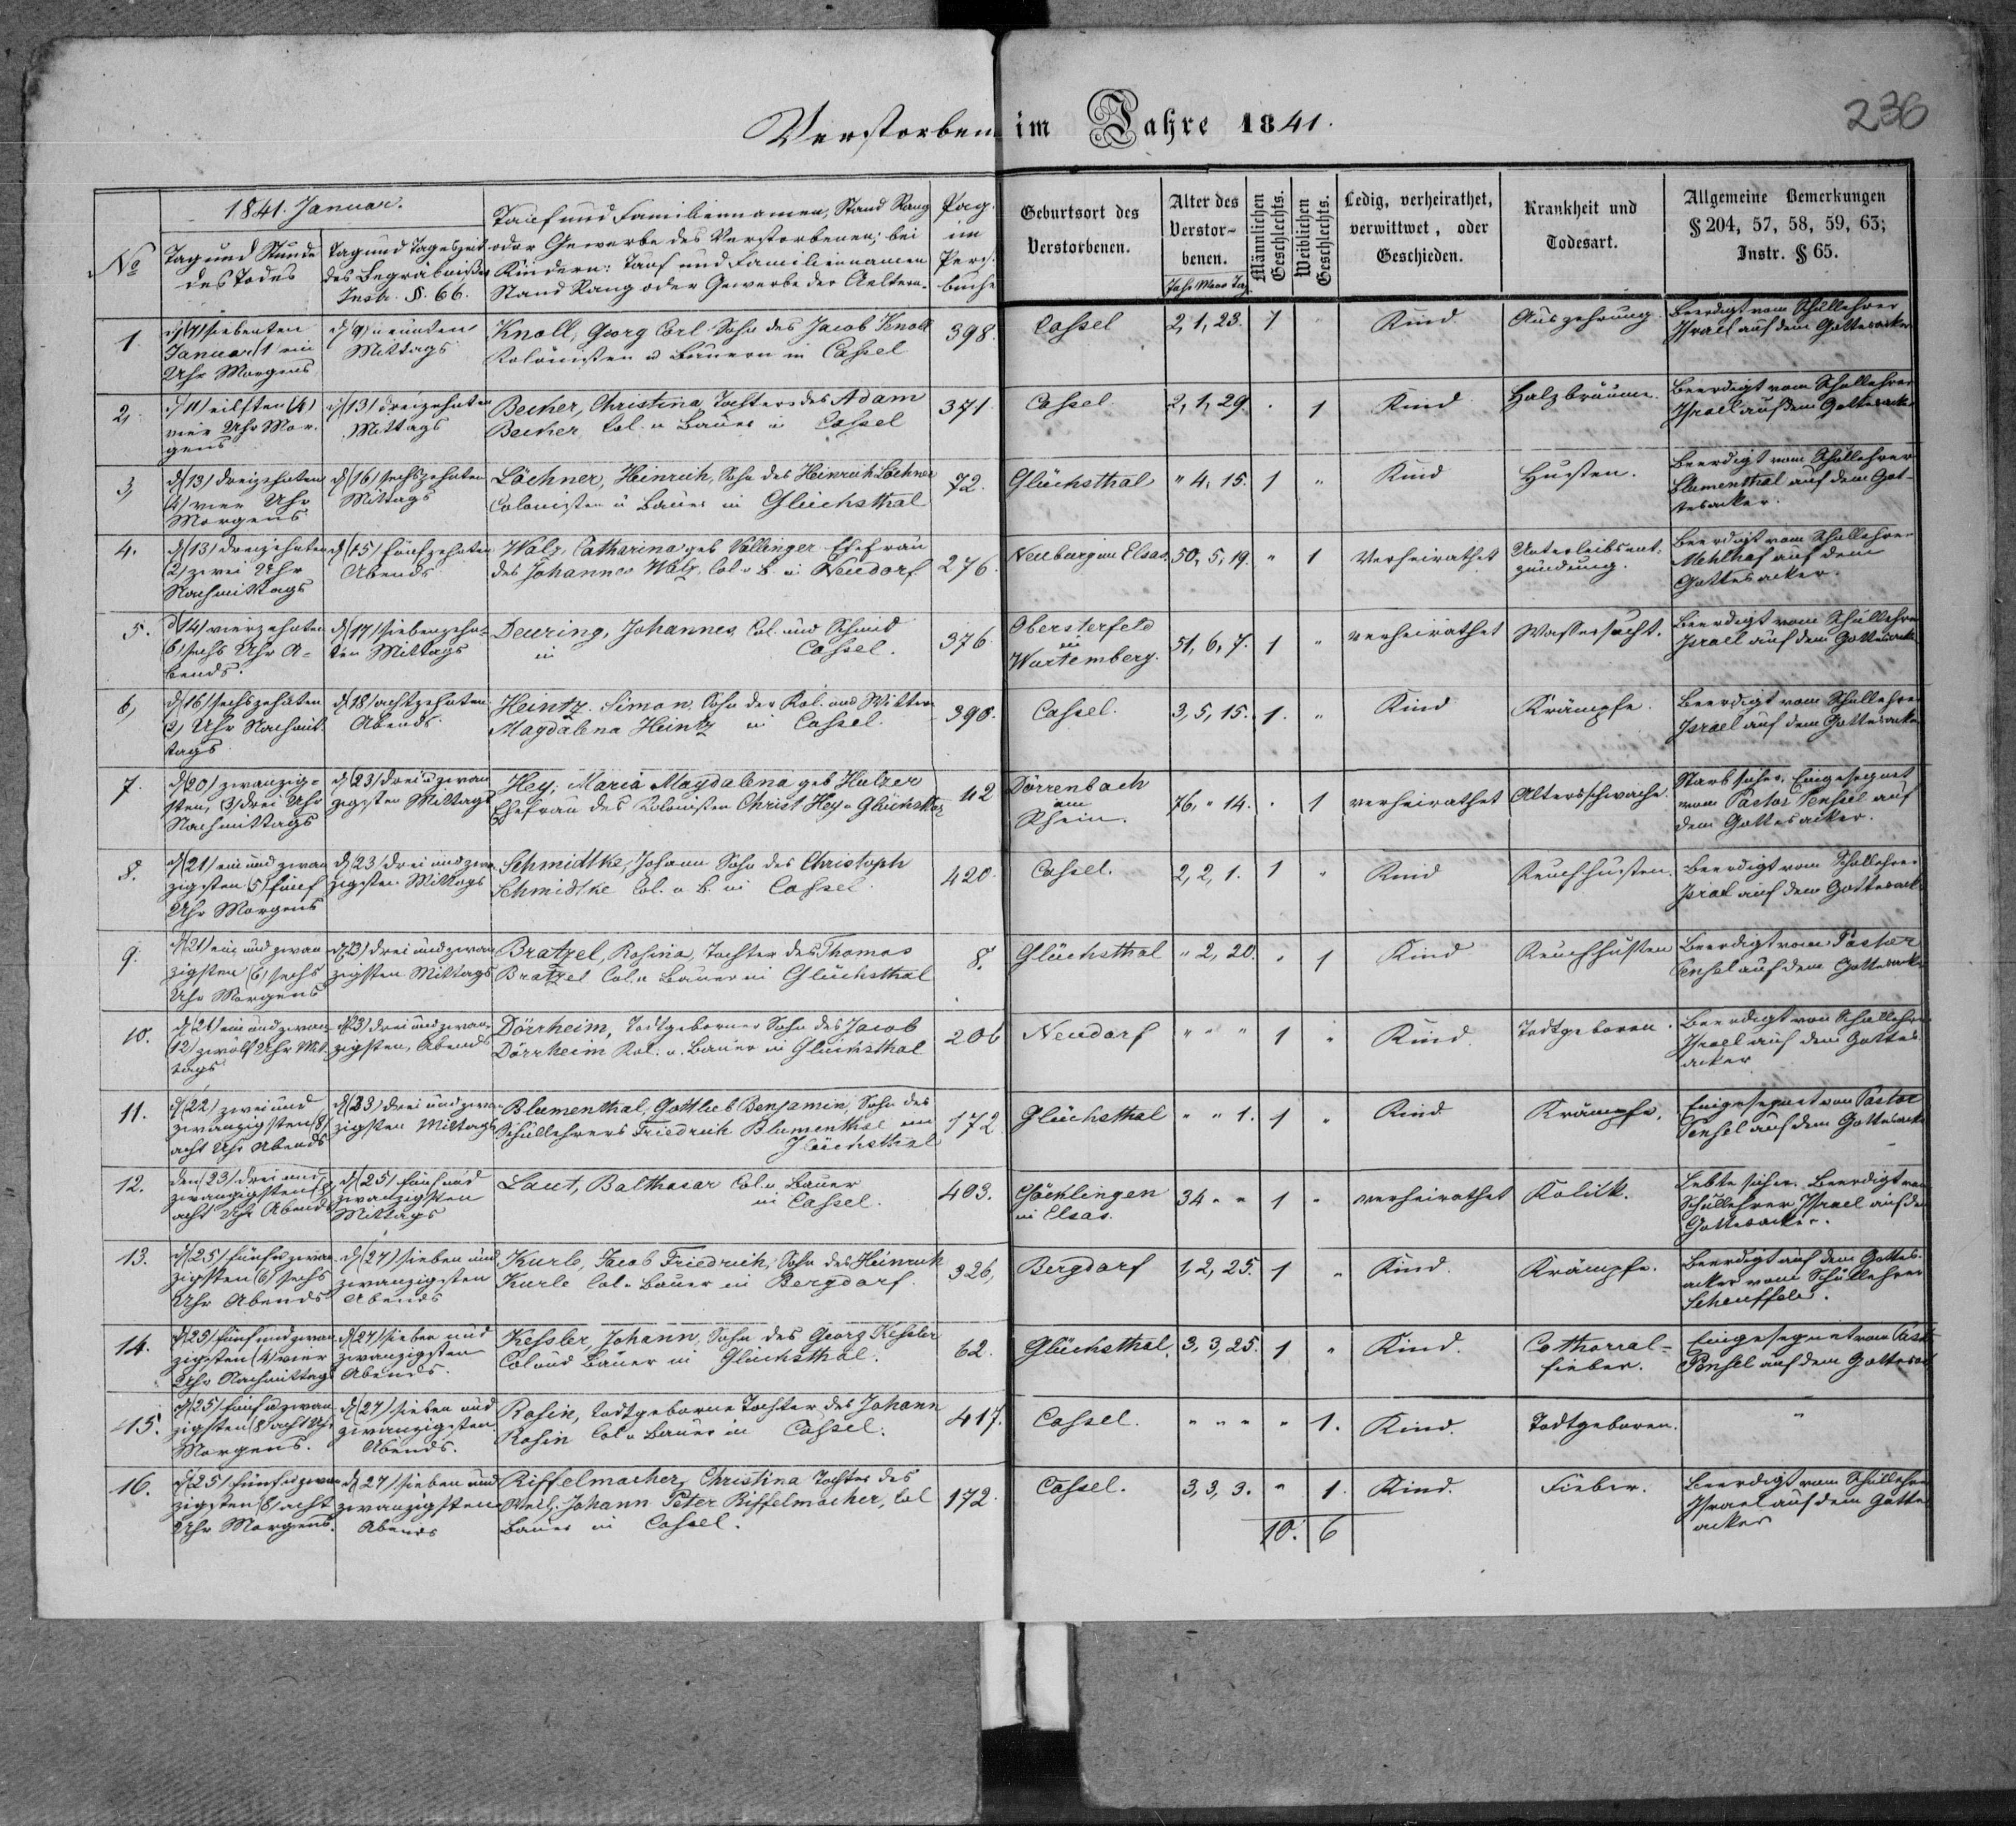 Verstorben im Jahre 1841.
236
1841. Januar.
No
Tag und Stunde
des Todes
Tag und Tageszeit
des Begräbnißes
Instr. §. 66.
Tauf und Familiennamen, Stand Rang
oder Gewerbe des Verstorbenen; bei
Kindern: Tauf und Familiennamen
Stand Rang oder Gewerbe der Aeltern.
Pag.
im
Pers.
buche
Geburtsort des
Verstorbenen.
Alter des
Verstor-
benen.
Jahr Mon Tag
Männlichen
Geschlechts.
Weiblichen
Geschlechts.
Ledig, verheirathet,
verwittwet, oder
Geschieden.
Krankheit und
Todesart.
Allgemeine Bemerkungen
§ 204, 57, 58, 59, 63;
Instr. § 65.
1.
d (7) siebenten
Januar (1 ein
Uhr Morgens
d (9) neunten
Mittags
Knoll, Georg Carl Sohn des Jacob Knoll
Kolonisten u Bauern in Cassel
398.
Cassel
2, 1, 23. 1 "
Kind
Auszehrung.
Beerdigt vom Schullehrer
Israel auf dem Gottesacker
2,
d (11) eilften (4)
vier Uhr Mor-
gens
d (13) dreizehnten
Mittags
Becker, Christina Tochter des Adam
Becker Col. u Bauer in Cassel
371
Cassel
2, 1, 29 . 1
Kind
Halsbräune.
Beerdigt vom Schullehrer
Israel auf dem Gottesack
3,
d (13) dreizehnten
(4) vier Uhr
Morgens
d (16) sechszehnten
Mittags
Löchner, Heinrich, Sohn des Heinrich Löchner
Colonisten u Bauer in Glücksthal
72.
Glücksthal
" 4, 15. 1 "
Kind
Husten.
Beerdigt vom Schullehrer
Blumenthal auf dem Got-
tesacker.
4.
d (13) dreizehnten
(2) zwei Uhr
Nachmittags
d (15) fünfzehnten
Abends
Walz, Catharina geb Vollinger Ehefrau
des Johannes Walz Col u B. in Neudorf
276.
Neuburg im Elsas.
50, 5, 19. " 1
Verheirathet
Unterleibsent-
zündung.
Beerdigt vom Schullehrer
Mehlhaf auf dem
Gottesacker.
5.
d (14) vierzehnten
6) sechs Uhr A-
bends.
d (17) siebenzehn-
ten Mittags
Deuring, Johannes Col. und Schmid
in Cassel.
376
Obersterfeld
in
Würtemberg.
51, 6, 7. 1 "
verheirathet
Wassersucht.
Beerdigt vom Schullehrer
Israel auf dem Gottesack
6,
d (16) sechszehnten
(2) Uhr Nachmit-
tags
d (18) achtzehnten
Abends
Heintz Simon, Sohn der Kol. und Wittwe
Magdalena Heintz in Cassel.
390.
Cassel.
3, 5, 15. 1. "
Kind
Krämpfe.
Beerdigt vom Schullehrer
Israel auf dem Gottesacke
7.
d (20) zwanzig-
sten, (3) drei Uhr
Nachmittags
d (23) drei u zwan
zigsten Mittags
Hey, Maria Magdalena geb Hulzer
Ehefrau des Kolonisten Christ Hey
42
Dörrenbach
am
Rhein.
76, " 14. . 1
verheirathet
Altersschwäche.
Starb sicher. Eingesegnet
vom Pastor Pensel auf
dem Gottesacker.
8.
d (21) ein und zwan
zigsten (5) fünf
Uhr Morgens
d (23 drei und zwa
zigsten Mittags
Schmidtke, Johann Sohn des Christoph
Schmidtke Col. u. B. in Cassel.
420.
Cassel.
2, 2, 1. 1 "
Kind
Keuchhusten.
Beerdigt vom Schullehrer
Israel auf dem Gottesack
9.
d (21) ein und zwan
zigsten (6) sechs
Uhr Morgens
d (23) drei und zwan
zigsten Mittags
Bratzel, Rosina, Tochter des Thomas
Bratzel Col. u Bauer in Glücksthal
8.
Glücksthal
" 2, 20. " 1
Kind
Keuchhusten
Beerdigt vom Pastor
Pensel auf dem Gottesack
10.
d (21) ein und zwan
(12) zwölf Uhr Mit
tags
d (23) drei und zwan-
zigsten, Abends
Dörrheim, Todtgeborner Sohn des Jacob
Dörrheim Kol. u. Bauer in Glücksthal
206
Neudorf
" " " 1 "
Kind
Todtgeboren.
Beerdigt vom Schullehrer
Israel auf dem Gottes
acker
11.
d (22) zwei und
zwanzigsten (8)
acht Uhr Abends
d (23) drei und zwan
zigsten Mittags
Blumenthal, Gottlieb Benjamin, Sohn des
Schullehrers Friedrich Blumenthal in
Glücksthal
172
Glücksthal
" " 1. 1 "
Kind
Krämpfe.
Eingesegnet von Pastor
Pensel auf dem Gottesack
12.
den (23) drei und
zwanzigsten (8)
acht Uhr Abends
d (25) fünf und
zwanzigsten
Mittags
Laut, Balthasar Col u Bauer
in Cassel.
403.
Göcklingen
in Elsas.
34 " " 1 "
verheirathet
Kolik.
Lebte sicher. Beerdigt vom
Schullehrer Israel auf dem
Gottesacker.
13.
d (25) fünf u zwan
zigsten (6) sechs
Uhr Abends
d (27) sieben und
zwanzigsten
Abends
Kurle, Jacob Friedrich, Sohn des Heinrich
Kurle Col u Bauer in Bergdorf.
326,
Bergdorf
1, 2, 25. 1 "
Kind.
Krämpfe.
Beerdigt auf dem Gottes-
acker vom Schullehrer
Scheuffele.
14.
d (25) fünf und zwan
zigsten (4) vier
Uhr Nachmittags
d (27) sieben und
zwanzigsten
Abends.
Kessler, Johann, Sohn des Georg Kessler
Col und Bauer in Glücksthal.
62.
Glücksthal,
3, 3, 25. 1 "
Kind.
Catharral-
fieber.
Eingesegnet vom Past
Pensel auf dem Gottesack
15.
d (25) fünf u zwan
zigsten (8 acht Uhr
Morgens.
d (27) sieben und
zwanzigsten
Abends.
Rosin, todtgeborne Tochter des Johann
Rosin Col u Bauer in Cassel.
417.
Cassel.
" " " " 1.
Kind.
Todtgeboren.
"
16.
d (25) fünf u zwan
zigsten (8) acht
Uhr Morgens.
d 27) sieben und
zwanzigsten
Abends
Riffelmacher, Christina Tochter des
Johann Peter Riffelmacher, Col
Bauer in Cassel.
172.
Cassel.
3, 3, 3. " 1.
Kind.
Fieber.
Beerdigt vom Schullehrer
Israel auf dem Gottes
acker
10. 6